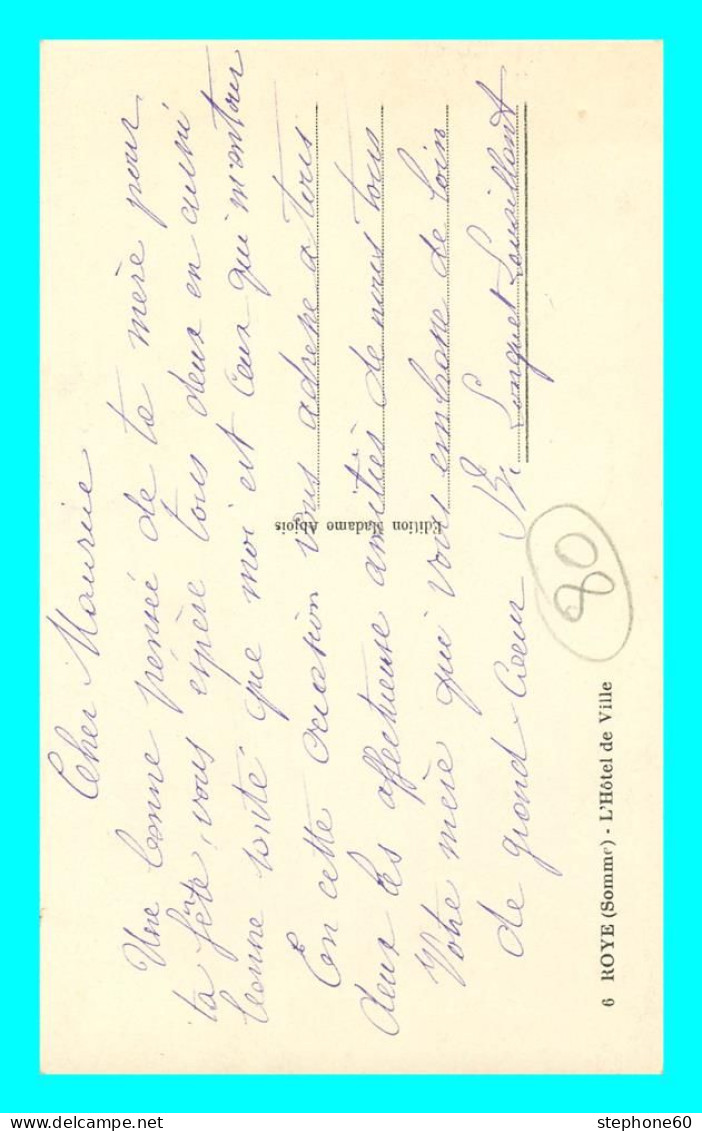 Cher Maurice
Une bonne pensée de ta mère pour
ta fête, vous espère tous deux en aussi
bonne santé que moi et ceux qui m'entour
En cette occasion vous adresse a tous
deux les affectueuse amitiés de nous tous
Votre mère qui vous embrasse de loin
de grand cœur
Longuet
Edition Madame Abjois
80
6 ROYE (Somme) - L'Hôtel de Ville
stephone60